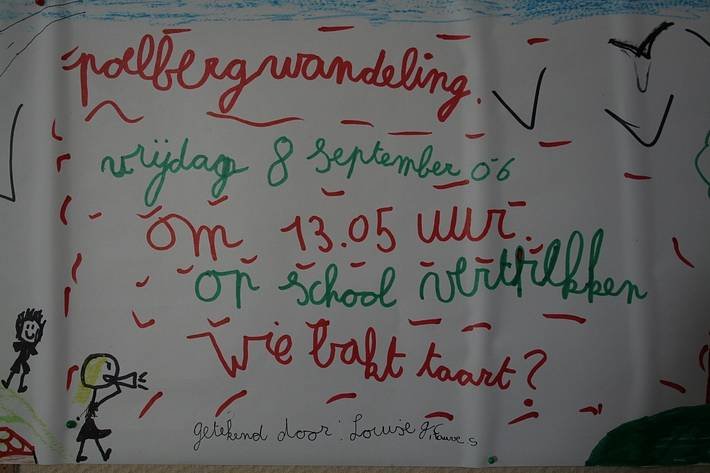 poelbergwandeling.
vrijdag 8 september 06
om 13.05 uur.
op school vertrekken
Wie bakt taart?
getekend door: Louise g,